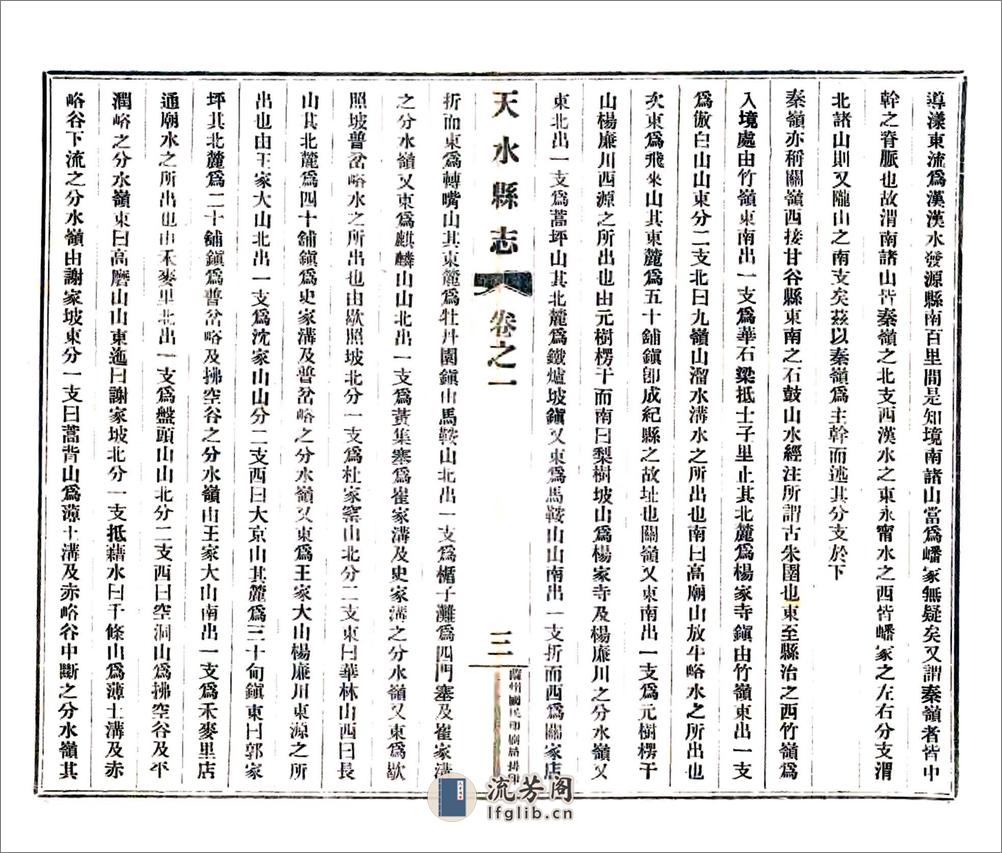 導漾東流爲漢漢水發源縣南百里間是知境南諸山當爲嶓冢無疑矣又謂秦嶺者皆中
幹之脊脈也故渭南諸山皆秦嶺之北支西漢水之東永甯水之西皆嶓冢之左右分支渭
北諸山則又隴山之南支矣茲以秦嶺爲主幹而述其分支於下
秦嶺亦稱關嶺西接甘谷縣東南之石鼓山水經注所謂古朱圉也東至縣治之西竹嶺爲
入境處由竹嶺東南出一支爲華石梁抵士子里止其北麓爲楊家寺鎮由竹嶺東出一支
爲倣白山山東分二支北曰九嶺山溜水溝水之所出也南曰高廟山放牛峪水之所出也
次東爲飛來山其東麓爲五十舖鎮卽成紀縣之故址也關嶺又東南出一支爲元樹楞干
山楊廉川西源之所出也由元樹楞干而南曰梨樹坡山爲楊家寺及楊廉川之分水嶺又
東北出一支爲蓄坪山其北麓爲鐵爐坡鎮又東爲馬鞍山山南出一支折而西爲關家店
天水縣志 卷之一 三 蘭州國民印刷局排印
折而東爲轉嘴山其東麓爲牡丹園鎮由馬鞍山北出一支爲楯子灘爲四門塞及崔家溝
之分水嶺又東爲麒麟山山北出一支爲黃集寨爲崔家溝及史家溝之分水嶺又東爲歇
照坡普岔峪水之所出也由歇照坡北分一支爲杜家窰山北分二支東曰華林山西曰長
山其北麓爲四十舖鎮爲史家溝及普岔峪之分水嶺又東爲王家大山楊廉川東源之所
出也由王家大山北出一支爲沈家山山分二支西曰大京山其麓爲三十甸鎮東曰郭家
坪其北麓爲二十舖鎮爲普岔峪及拂空谷之分水嶺由王家大山南出一支爲禾麥里店
通廟水之所出也由禾麥里北出一支爲盤頭山山北分二支西曰空洞山爲拂空谷及平
澗峪之分水嶺東曰高磨山山東迤曰謝家坡北分一支抵藉水曰千條山爲源土溝及赤
峪谷下流之分水嶺由謝家坡東分一支曰蓄背山爲源土溝及赤峪谷中斷之分水嶺其
流芳阁
lfglib.cn